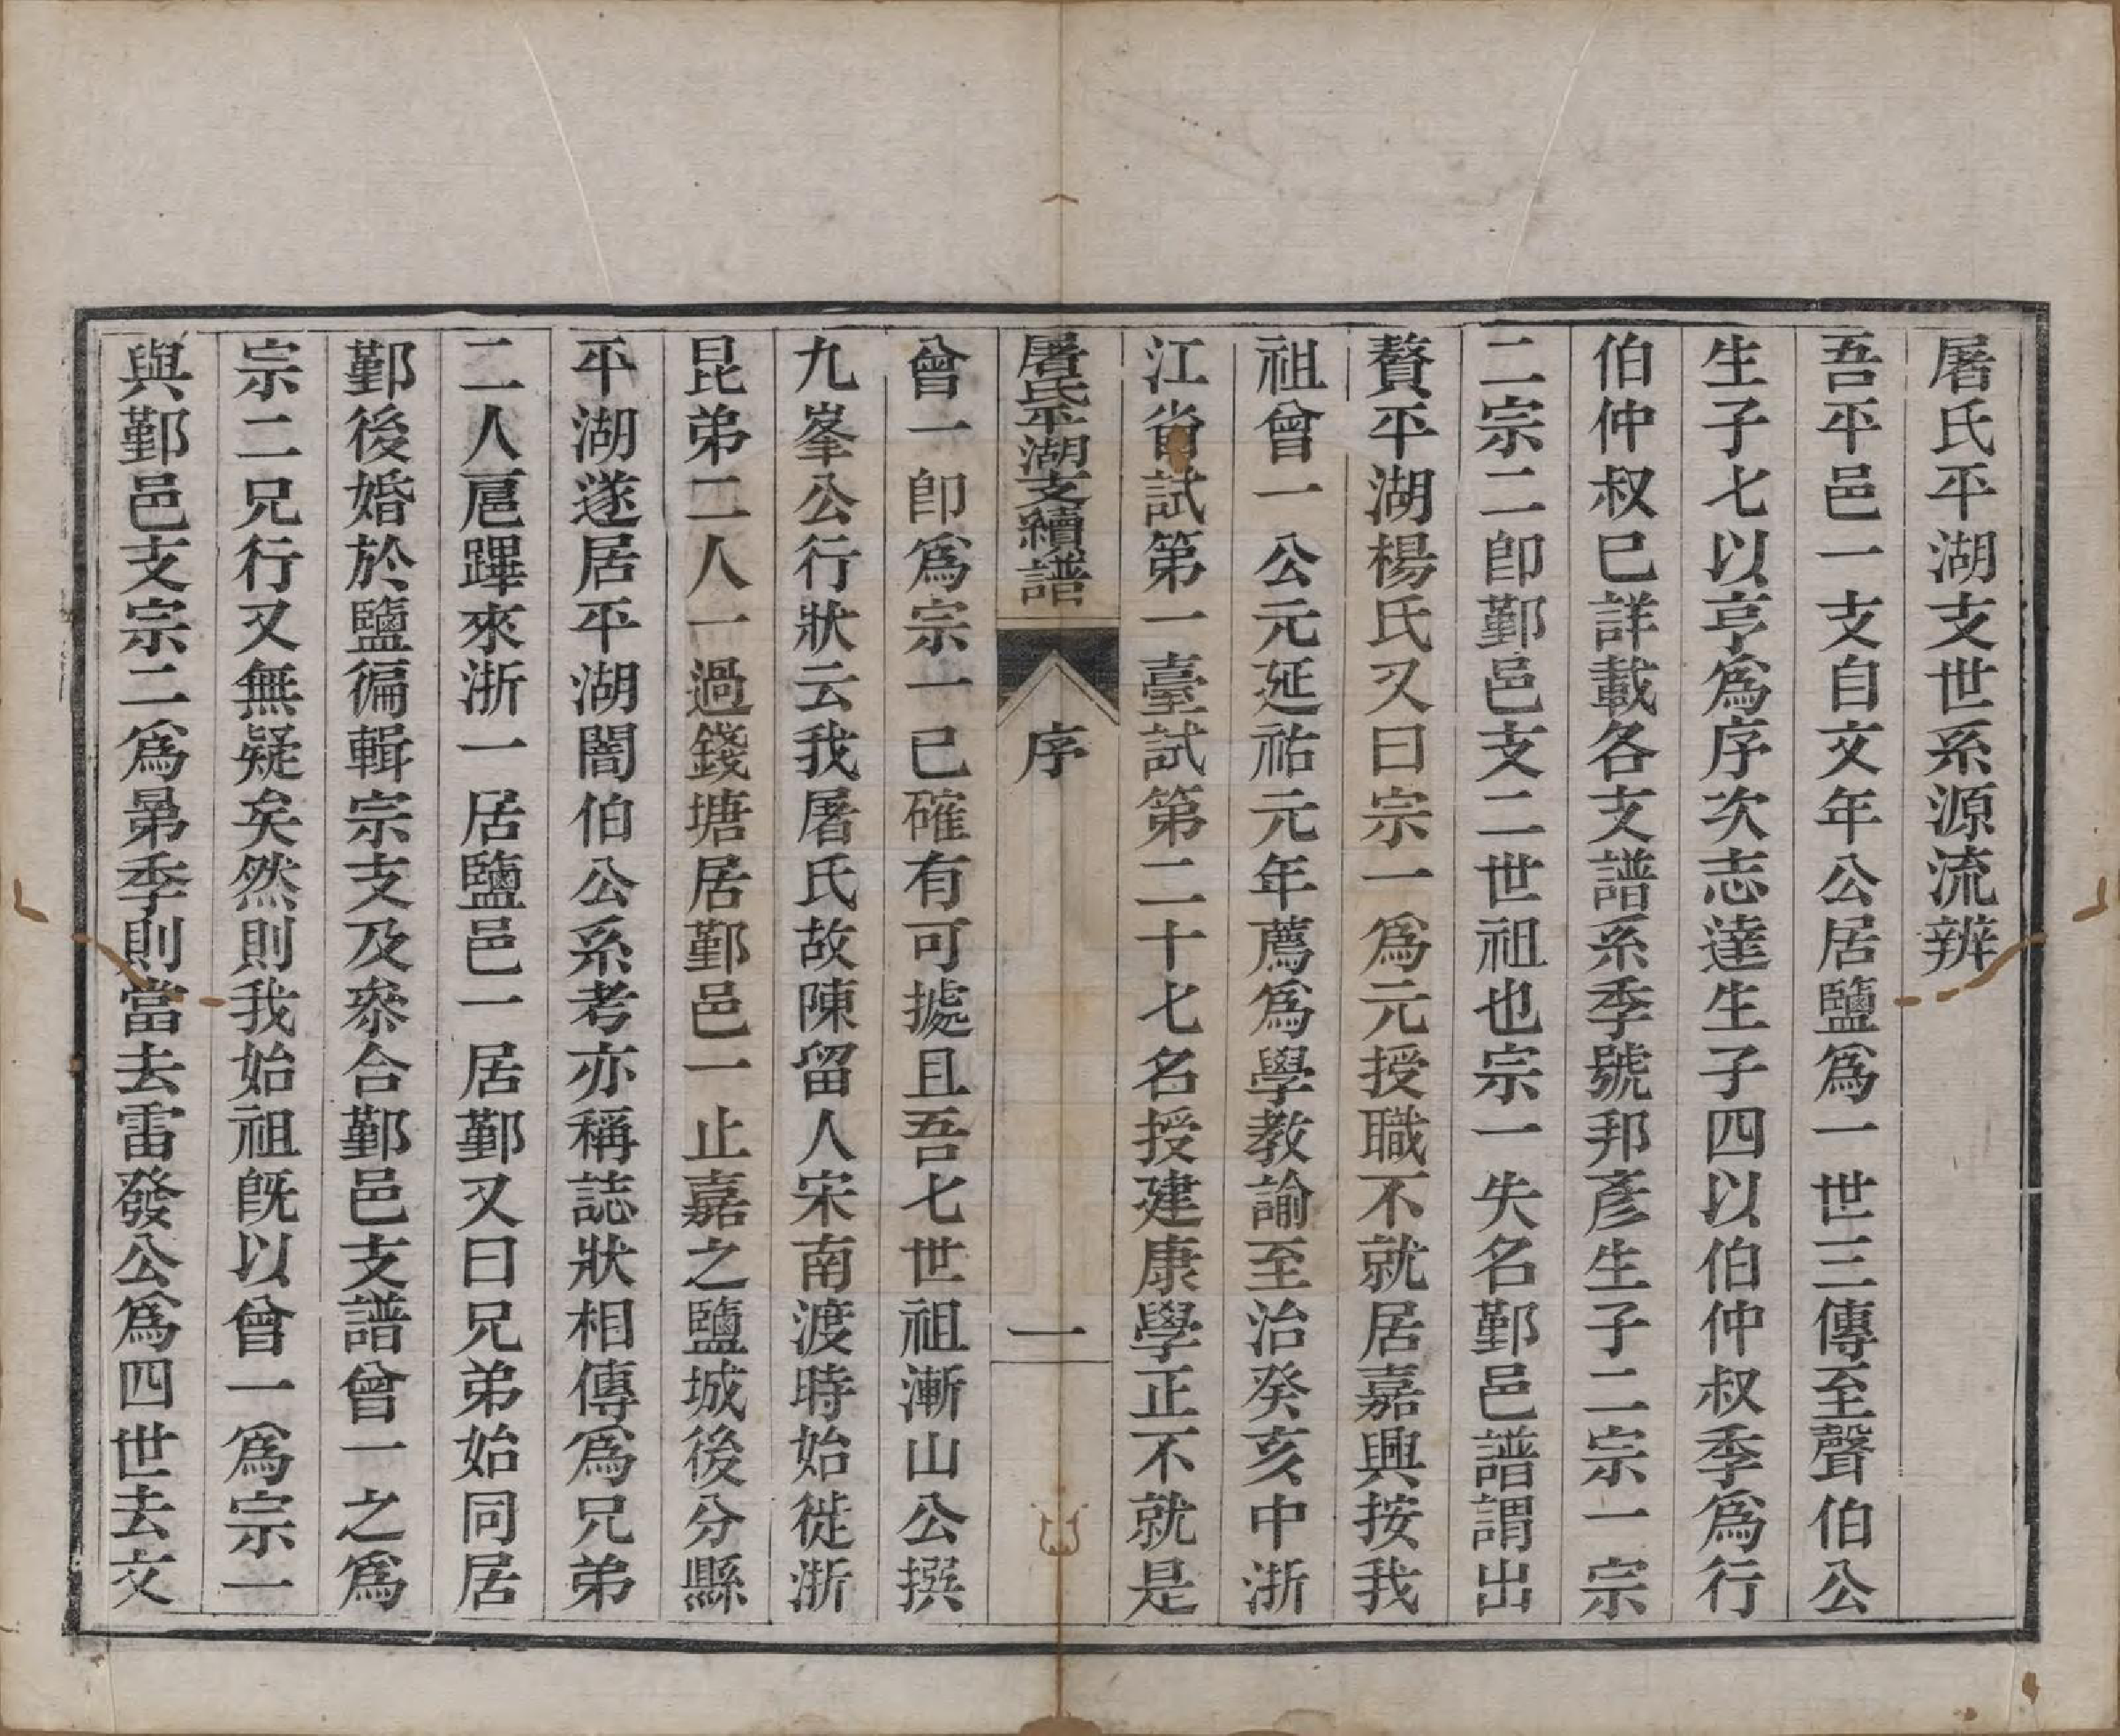 屠氏平湖支世系源流辨
吾平邑一支自文年公居鹽爲一世三傳至聲伯公
生子七以亨爲序次志達生子四以伯仲叔季爲行
伯仲叔巳詳載各支譜系季號邦彥生子二宗一宗
二宗二卽鄞邑支二世祖也宗一失名鄞邑譜謂出
贅平湖楊氏又曰宗一爲元授職不就居嘉興按我
祖曾一公元延祐元年薦爲學教諭至治癸亥中浙
江省試第一臺試第二十七名授建康學正不就是
屠氏平湖支續譜
序
一
曾一卽爲宗一已確有可據且吾七世祖漸山公撰
九峯公行狀云我屠氏故陳留人宋南渡時始徙浙
昆弟二人一過錢塘居鄞邑一止嘉之鹽城後分縣
平湖遂居平湖闇伯公系考亦稱誌狀相傳爲兄弟
二人扈蹕來浙一居鹽邑一居鄞又曰兄弟始同居
鄞後婚於鹽徧輯宗支及叅合鄞邑支譜曾一之爲
宗二兄行又無疑矣然則我始祖旣以曾一爲宗一
與鄞邑支宗二爲晜季則當去雷發公爲四世去文